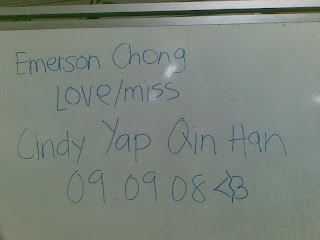 Emerson Chong
Love/miss
Cindy Yap Qin Han
09.09.08 <3